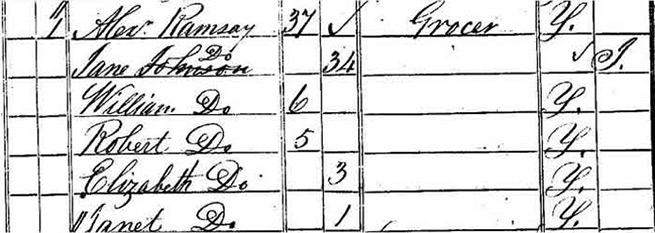 1 Alexr. Ramsay 37 Grocer Y.
Jane Johnson Do 34 I.
William Do 6 Y.
Robert Do 5 Y.
Elizabeth Do 3 Y.
Janet Do 1 Y.